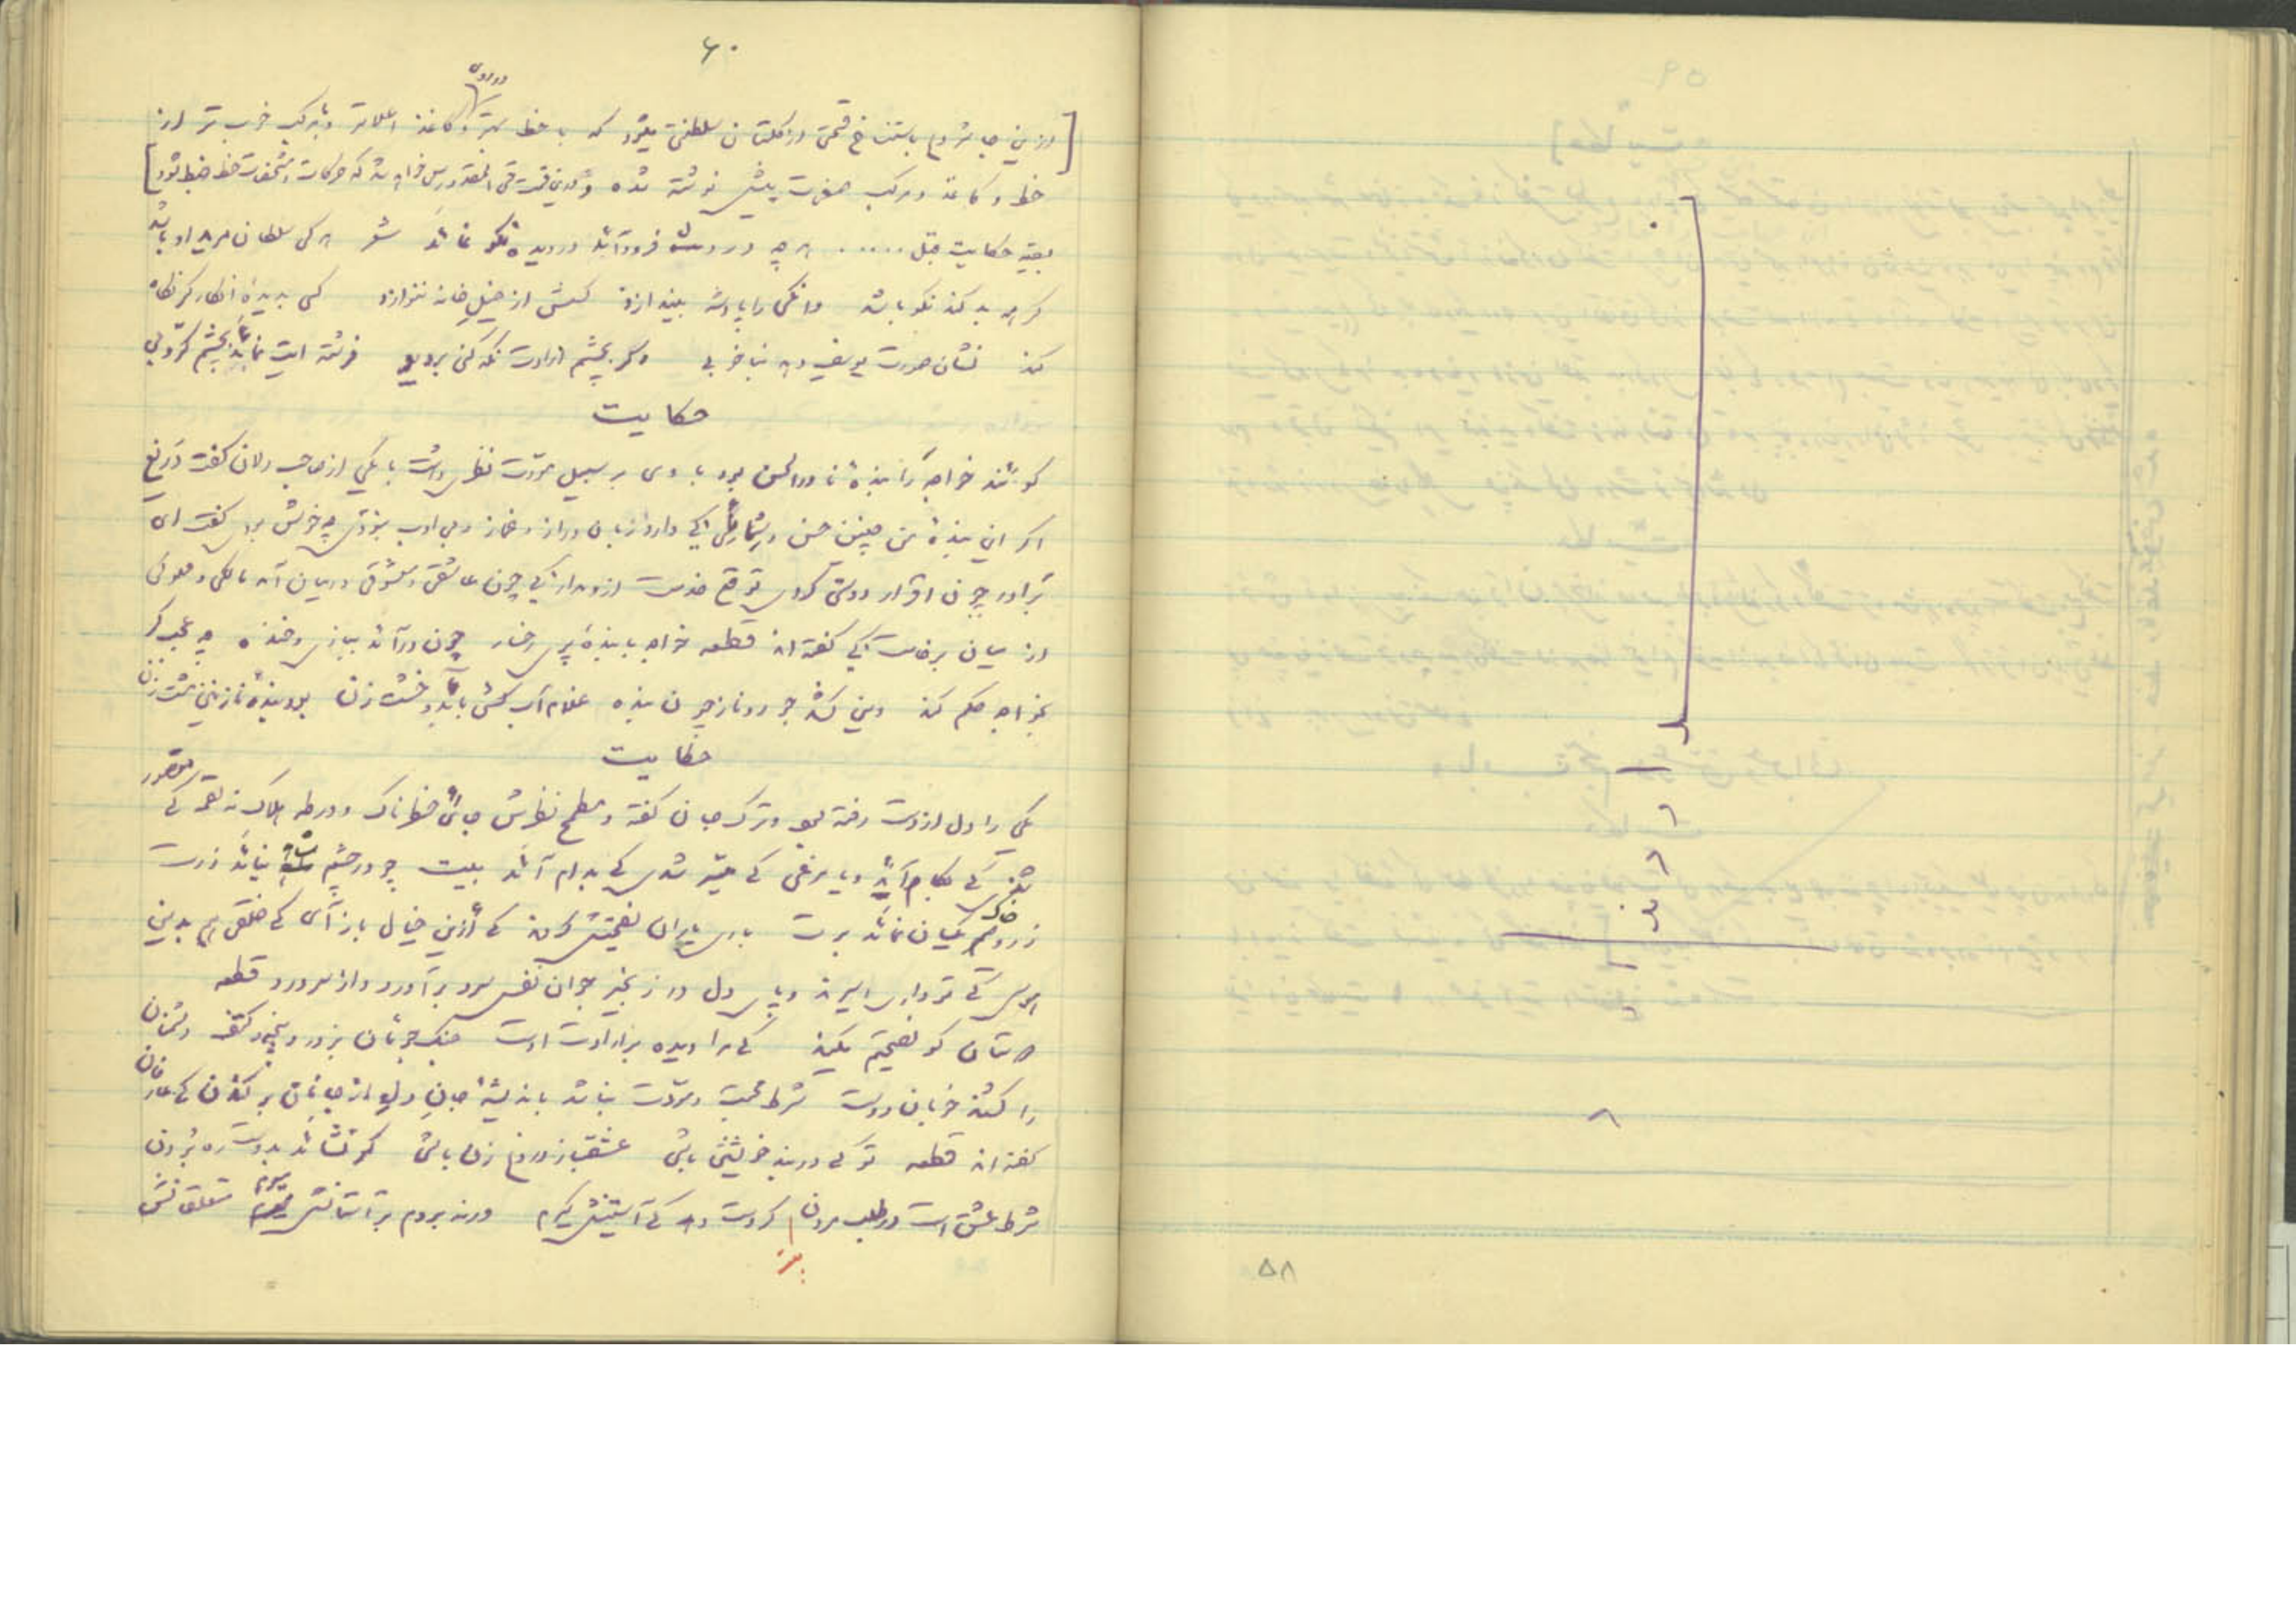 ۶۰
ازین جا شروع باستنساخ قسمتی از گلستان سلطنتی میشود که با خط بهتر و کاغذ اعلاتر و مرکب خوب تر از
خط و کاغذ و مرکب صفحات پیش نوشته شده و درین قسمت حتی المقدور سعی خواهد شد که حرکات و مشخصات خط ضبط شود]
بقیه حکایت قبل ..... هرچه در دل فرود آید در دیده نکو نماید شعر هرکی سلطان مرید او باشد
گر همه بد کند نکو باشد وانکی را پادشه بیندازد کسش از خیل خانه ننوازد کسی بدیدهٔ انکار گر نگاه
کند نشان صورت یوسف دهد بنا خوبی وگر بچشم ارادت نگه کنی در دیو فرشته ایت نماید بچشم کروبی
حکایت
گویند خواجه را بندهٔ نادر الحسن بود با وی بر سبیل مودت نظر داشت با یکی از صاحب دلان گفت دریغ
اگر این بندهٔ من چنین حسن و شمایلی کی دارد زبان دراز و بی ادب نبودی چه خوش بودی گفت ای
برادر چون اقرار دوستی کردی توقع خدمت از و مدار کی چون عاشقی و معشوقی درمیان آمد مالکی و مملوکی
از میان برخاست کی گفته اند قطعه خواجه با بندهٔ پری رخسار چون درآمد ببازی و خنده چه عجب گر
بخواجه حکم کند وین کشد جور و ناز چون بنده غلام آب کش باید و خشت زن بود بندهٔ نازنین مشت زن
حکایت
یکی را دل از دست رفته بود و ترک جان گفته و مطمح نظرش جائی خطرناک و ورطه هلاک نه لقمهٔ کی متصور
شدی کی بکام آید و یا مرغی کی میسر شدی کی بدام آید بیت چو در چشم شاهد نیاید زرت
زر و خاک یکسان نماید برت باری یاران نصیحتش کردند کی ازین خیال باز آی کی خلقی هم بدین
هوس کی تو داری اسیرند و پای دل در زنجیر جوان نفس سرد برآورد و از سر درد قطعه
دوستان کو نصیحتم مکنید کی مرا دیده بر ارادت اوست جنک جویان بزور و پنجه و کتف دشمنان
را کشند و خوبان دوست شرط محبت و مودت نباشد باندیشهٔ جان دل از جانان بر کندن کی عارفان
گفته اند قطعه تو کی در بند خویشتن باشی عشقباز دروغ زن باشی گر نشاید بدوست ره بردن
شرط عشق است در طلب مردن گر دست دهد کی آستینش گیرم ورنه بروم بر آستانش میرم متعلقانش
۵۸